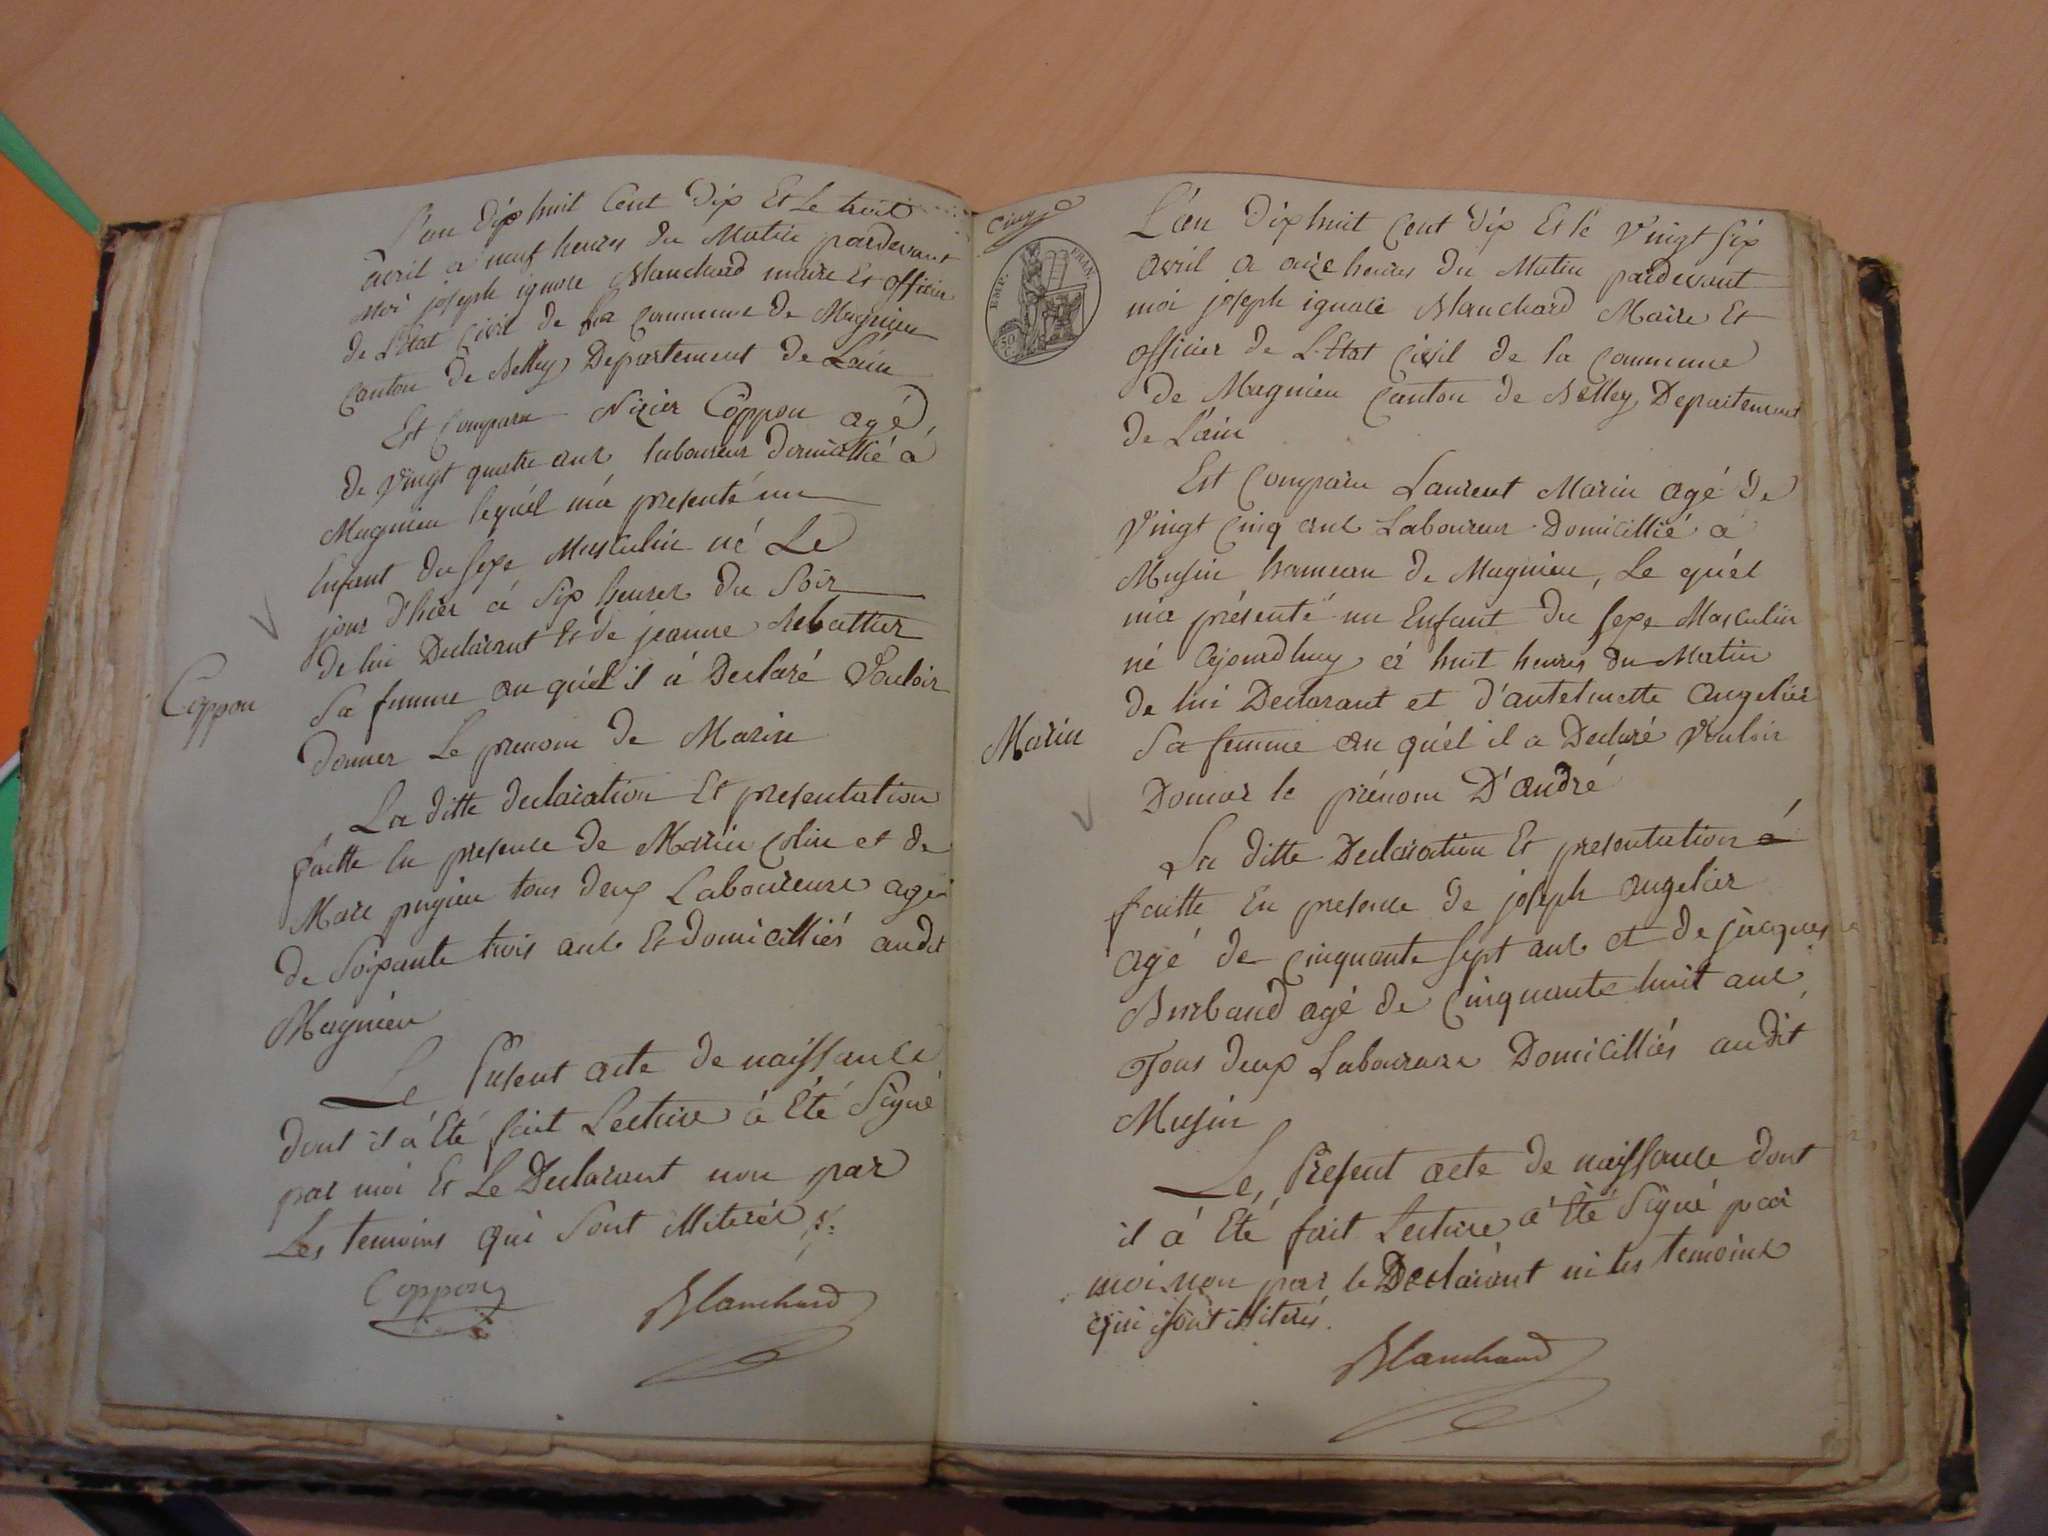 L'an dix huit Cent dix Et Le trois
avril a neuf heures du Matin pardevant
moi joseph ignace Blanchard maire Et officier
de L'Etat Civil de La Commune de Magnieu
Canton de Belley Departement de Lain
Est Comparu Nizier Coppon agé
de vingt quatre ans laboureur domicillié à
Magnieu lequél m'a presenté un
Enfant du sexe Masculin né Le
jour d'hier à six heures du Soir
de lui Declarant Et de jeanne Rebattier
Sa femme au quél il à Declaré Vouloir
donner Le prenom de Marin
Coppon
La ditte declaration Et presentation
faitte En presence de Marin Colin et de
Marc pugieu tous deux Laboureurs agés
de Soixante trois ans Et domicilliés audit
Magnieu
Le Présent acte de naissance
dont il à Eté fait Lecture à Eté Signé
par moi Et Le Declarant non par
Les temoins qui Sont illiterés
Coppon Blanchard
Cinq
EMP. FRAN.
50
L'an dix huit Cent dix Et le vingt six
avril a onze heures du Matin pardevant
moi joseph ignace Blanchard Maire Et
officier de L'Etat Civil de la Commune
de Magnieu Canton de Belley Departement
de Lain
Est Comparu Laurent Marin agé de
vingt Cinq ans Laboureur Domicillié a
Musin hameau de Magnieu, Le quél
m'a présenté un Enfant du sexe Masculin
né Ajourdhuy à huit heures du Matin
de lui Declarant et d'antelmette angelier
Sa femme au quél il a Declaré Vouloir
Donner le prénom D'andré
Marin
La ditte Declaration Et presentation à
faitte En presence de joseph angelier
agé de cinquante sept ans et de jacques
Burbaud agé de Cinquante huit ans
Tous deux Laboureurs Domicilliés audit
Musin
Le Présent acte de naissance dont
il à Eté fait Lecture à Eté Signé par
moi non par le Declarant ni les temoins
qui sont illiterés.
Blanchard